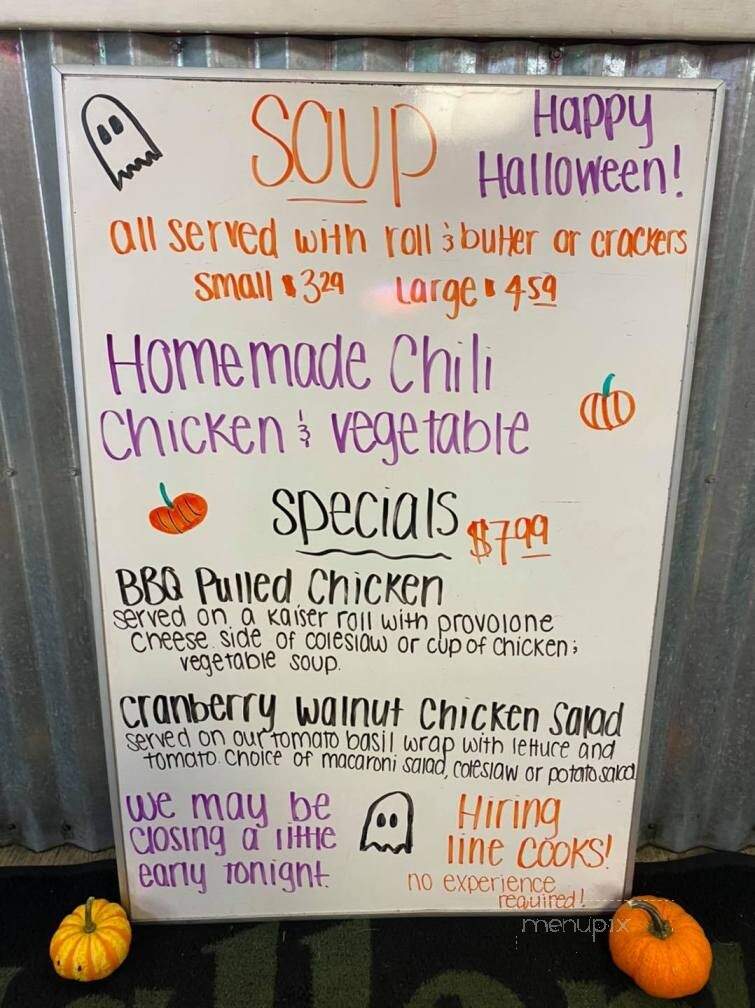 SOUP
Happy
Halloween!
all served with roll & butter or crackers
small $3.29 Large $4.59
Homemade Chili
Chicken & vegetable
specials $7.99
BBQ Pulled Chicken
served on a Kaiser roll with provolone
cheese. side of coleslaw or cup of chicken &
vegetable soup.
Cranberry Walnut Chicken Salad
served on our tomato basil wrap with lettuce and
tomato. choice of macaroni salad, coleslaw or potato salad
We may be
closing a little
early tonight.
Hiring
line cooks!
no experience
required!
menupix